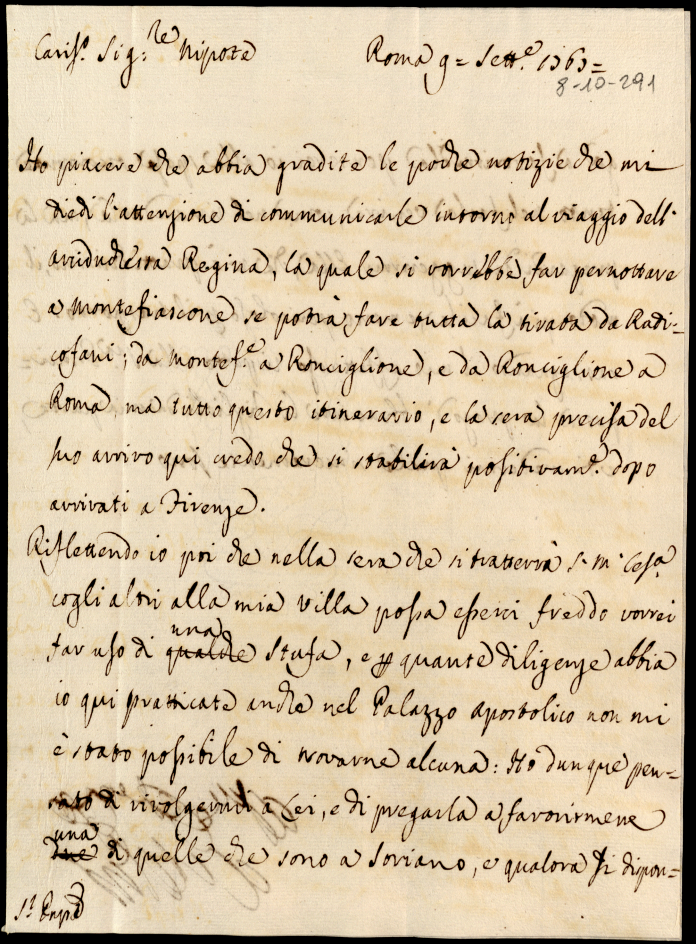 Cariss.º Sig.re Nipote Roma 9 = Sett.e 1763 =
8-10-291
Ho piacere che abbia gradite le poche notizie che mi
diedi l'attenzione di communicarle intorno al viaggio dell'
arciduchessa Regina, la quale si vorrebbe far pernottare
a Montefiascone se potrà fare tutta la tirata da Radi-
cofani; da Montef.e a Ronciglione, e da Ronciglione a
Roma, ma tutto questo itinerario, e la sera precisa del
suo arrivo qui credo che si stabilirà positivam.e dopo
arrivati a Firenze.
Riflettendo io poi che nella sera che si tratterrà S. M. Ces.a
cogli altri alla mia Villa possa esserci freddo vorrei
far uso di qualche una stufa, e p quante diligenze abbia
io qui pratticate anche nel Palazzo Apostolico non mi
è stato possibile di trovarne alcuna: Ho dunque pen-
sato di rivolgermi a Lei, e di pregarla a favorirmene
due una di quelle che sono a Soriano, e qualora si dispon-